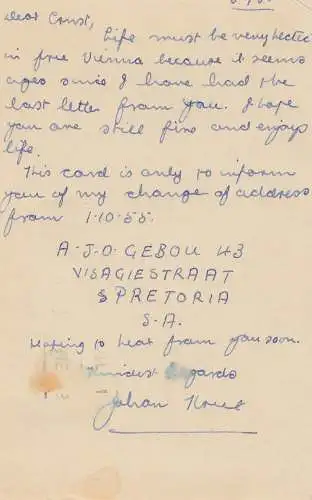 Dear Ernst,
Life must be very hectic
in free Vienna because it seems
ages since I have had the
last letter from you. I hope
you are still fine and enjoys
life.
This card is only to inform
you of my change of address
from 1-10-55.
A.J.O. GEBOU 43
VISAGIESTRAAT
PRETORIA
S.A.
Hoping to hear from you soon.
Kindest Regards
Johan